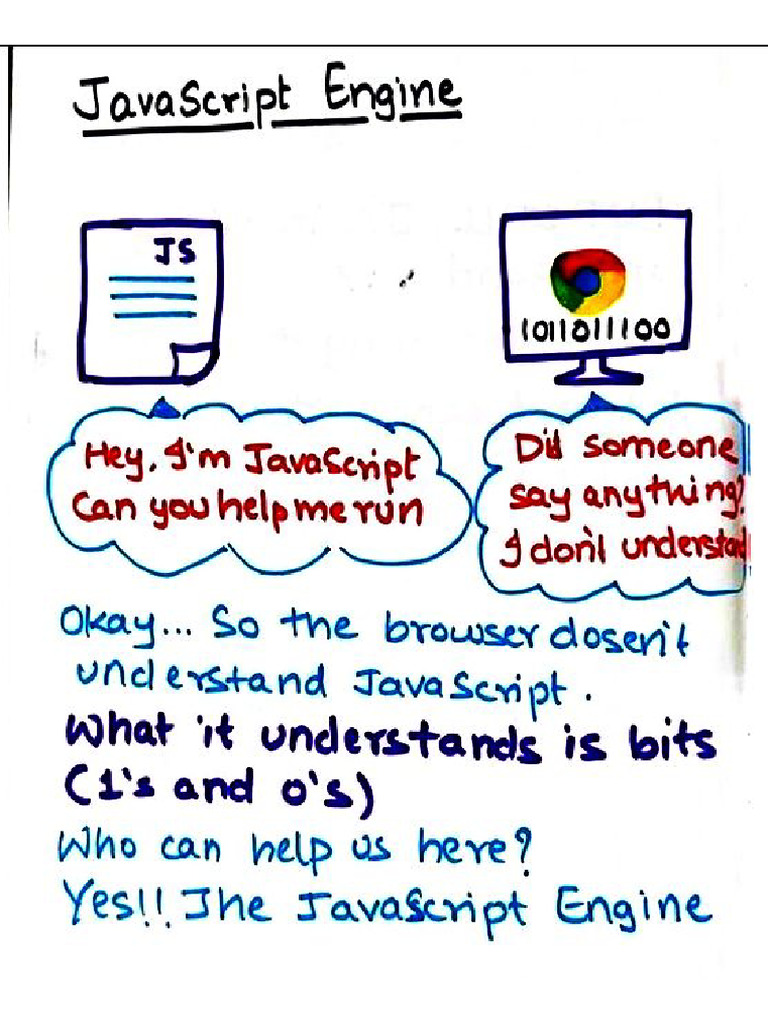 JavaScript Engine
JS
1011011100
Hey, I'm JavaScript
Can you help me run
Did someone
say anything?
I don't understand
Okay... So the browser dosen't
understand JavaScript.
What it understands is bits
(1's and 0's)
Who can help us here?
Yes!! The JavaScript Engine